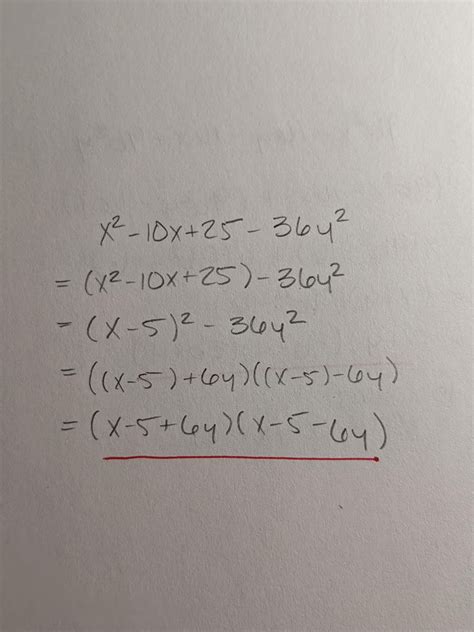 x²-10x+25-36y²
= (x²-10x+25)-36y²
= (x-5)² - 36y²
= ((x-5)+6y)((x-5)-6y)
= (x-5+6y)(x-5-6y)